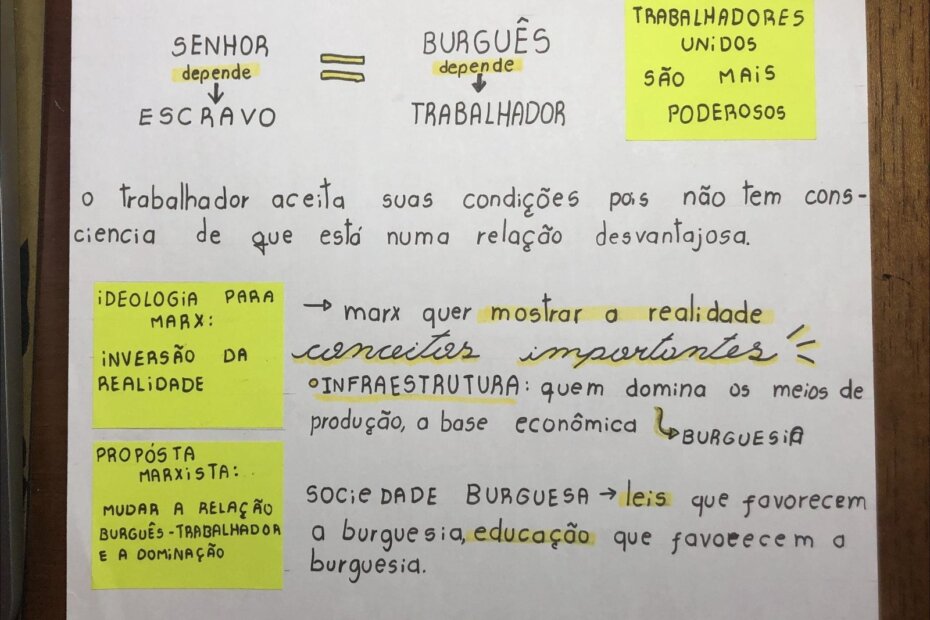 SENHOR
depende
ESCRAVO
=
BURGUÊS
depende
TRABALHADOR
TRABALHADORES
UNIDOS
SÃO MAIS
PODEROSOS
o trabalhador aceita suas condições pois não tem cons-
ciencia de que está numa relação desvantajosa.
IDEOLOGIA PARA
MARX:
INVERSÃO DA
REALIDADE
→ marx quer mostrar a realidade
conceitos importantes
INFRAESTRUTURA: quem domina os meios de
produção, a base econômica ↳ BURGUESIA
PROPÓSTA
MARXISTA:
MUDAR A RELAÇÃO
BURGUÊS-TRABALHADOR
E A DOMINAÇÃO
SOCIEDADE BURGUESA → leis que favorecem
a burguesia, educação que favorecem a
burguesia.